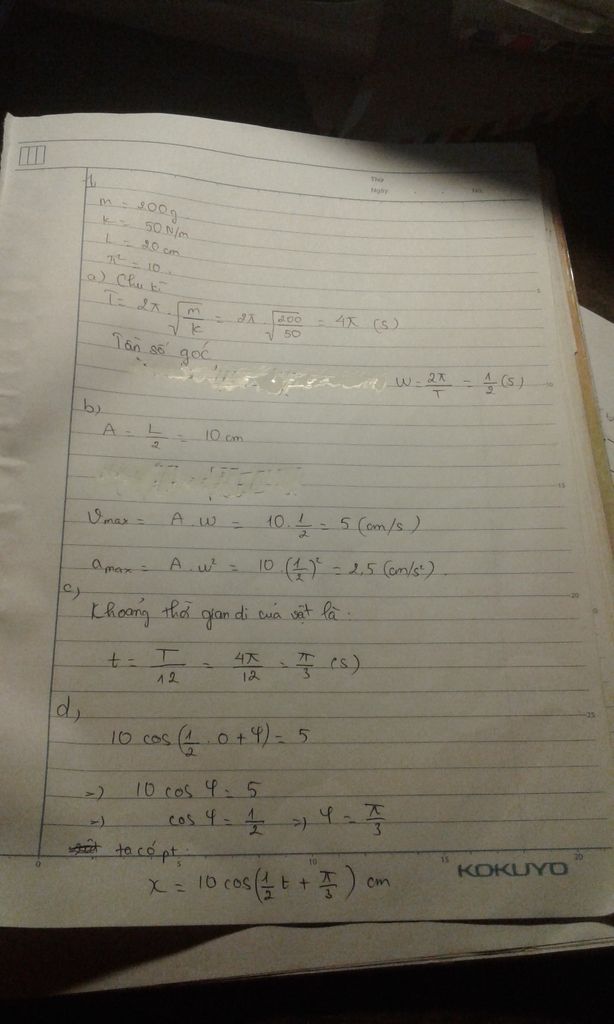 Thứ
Ngày No.
1,
m = 200g
k = 50 N/m
L = 20 cm
π² = 10.
a) Chu kì
T = 2π.√(m/k) = 2π.√(200/50) = 4π (s)
Tần số góc
W = 2π/T = 1/2 (s)
b)
A = L/2 = 10 cm
vmax = A.W = 10.1/2 = 5 (cm/s)
amax = A.W² = 10.(1/2)² = 2,5 (cm/s²).
c)
Khoảng thời gian đi của vật là:
t = T/12 = 4π/12 = π/3 (s)
d)
10 cos(1/2 . 0 + φ) = 5
=) 10 cos φ = 5
=) cos φ = 1/2 =) φ = π/3
ta có pt:
x = 10 cos(1/2 t + π/3) cm
5
10
15
20
25
0 5 10 15 20
KOKUYO